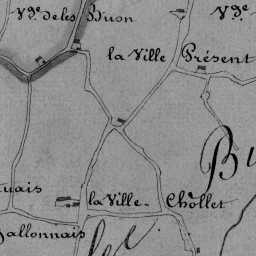 Vge de les Buon
Vge
la Ville Présent
Bu
la Ville-Chôllet
uais
allonnais